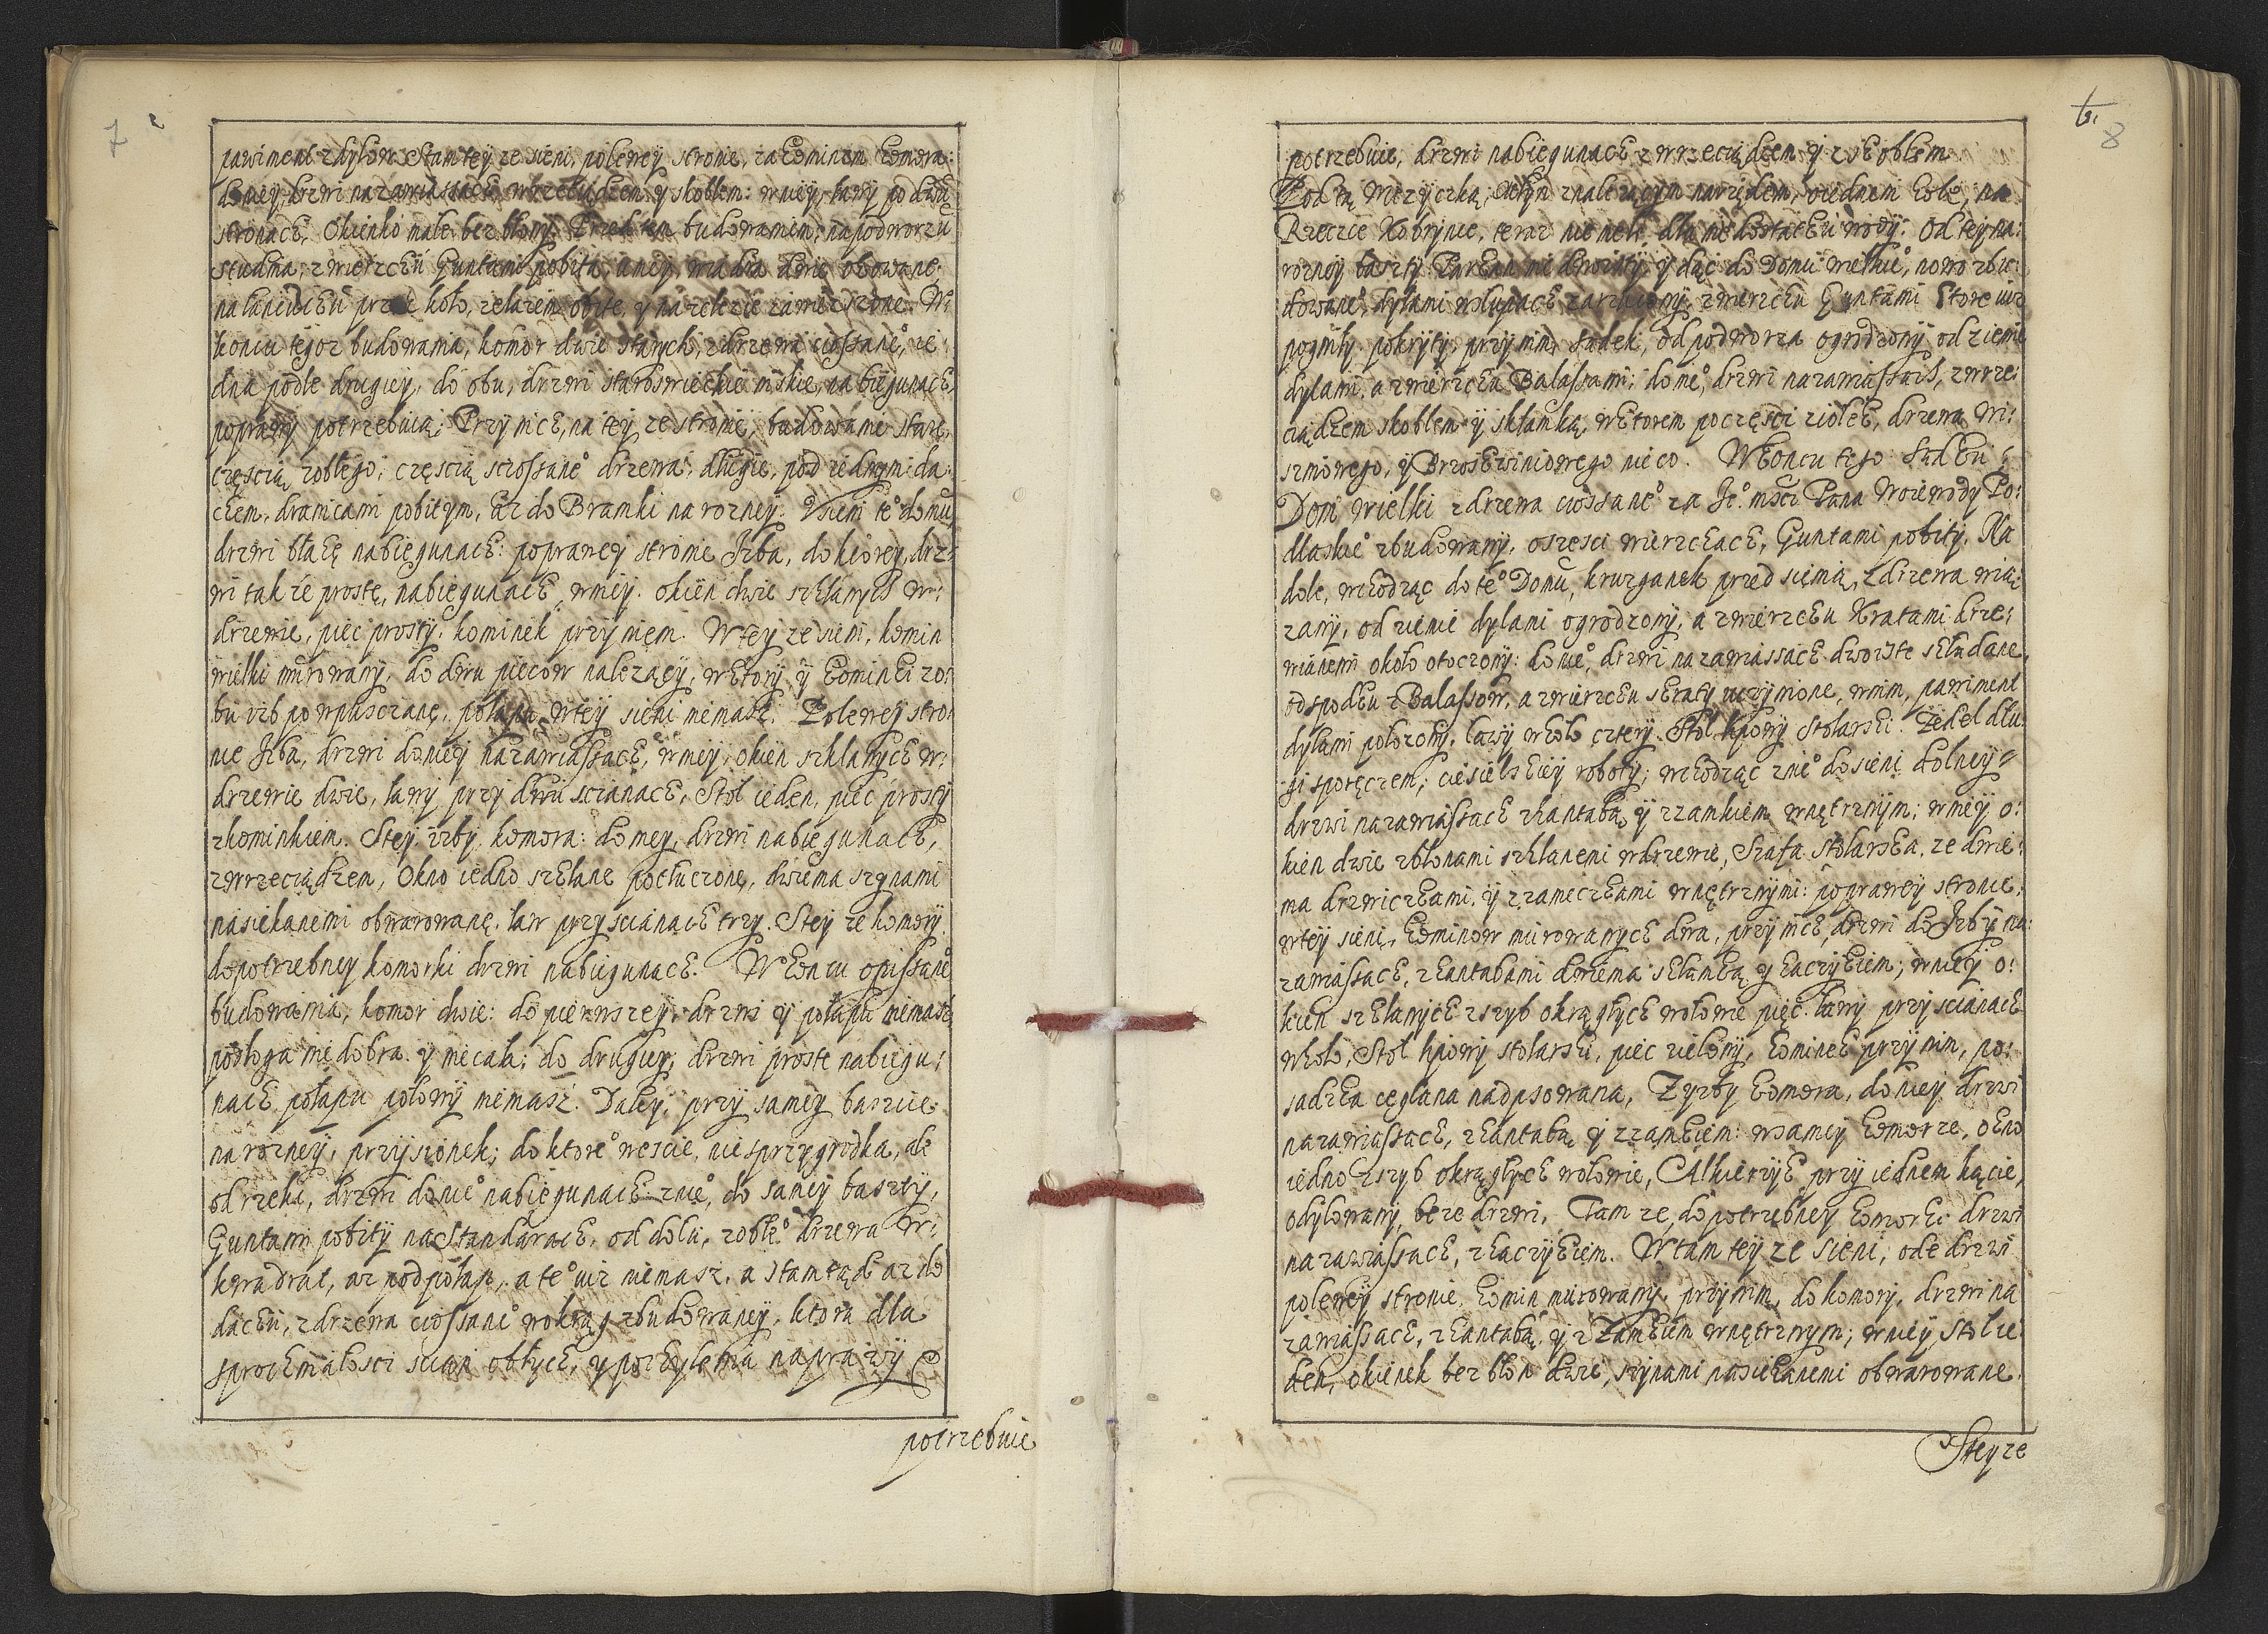 7
pawiment zdylow. Stamtey ze sieni, polewey stronie, za kominem komora:
doniey, drzwi nazawiassach, zwrzeciądzem y skoblem: wniey, ławy po dwu
stronach, Okienko małe bez błony. Przed tem budowaniem, napodworzu
studnia, zwierzchu Guntami pobita, uniey, wiadra dwie okowane,
nałancuchu przez koło, zelazem obite, y nazelezie zawieszone. W:
koncu tegoz budowania, komor dwie starych, zdrzewa ciossane°, ie:
dna podle drugiey, do obu, drzwi staroswieckie niskie, nabiegunach,
poprawy potrzebuią; Przy nich, na tey ze stronie, budowanie stare,
częscią zoblego, częscią sciossane° drzewa, długie, pod iednym da:
chem, dranicami pobitym, aż do Bramki narozney. Wsieni te° domu,
drzwi błahę nabiegunach: poprawey stronie Izba, do ktorey, drz:
wi także prostę, nabiegunach, wniey. okien dwie szklanych w:
drzewie, piec prosty, kominek przy niem. Wtey ze sieni, komin
wielki murowany, do dwu piecow nalezący, wktory y kominki zo:
bu izb powpusczanę, połapu wtey sieni niemasz. Polewey stro:
nie Izba, drzwi doniey nazawiassach, wniey, okien szklanych w:
drzewie dwie, ławy przy dwu scianach, Stoł ieden, piec prosty
zkominkiem. Stey izby, komora: doniey, drzwi nabiegunach,
zwrzeciądzem, Okno iedno szklane potłuczonę, dwiema szynami
nasiekanemi obwarowanę, ław przy scianach trzy. Stey ze komory
dopotrzebney komorki drzwi nabiegunach. Wkoncu opissane°
budowania, komor dwie: do pierwszey, drzwi y połapu niemasz
podłoga nie dobra y niecała; do drugiey, drzwi proste nabiegu:
nach, połapu połowy niemasz. Daley, przy samey baszcie
narozney, przysionek; do ktore° wescie, nie sprzygrodka, ale
od rzeki, drzwi donie° nabiegunach: znie°, do samey baszty,
Guntami pobity na Standarach, od dołu, zobłe° drzewa w:
kwadrat, az podpołap, a te° uiz niemasz, a stamtąd az do
dachu, zdrzewa ciossane° wokrąg zbudowaney, ktora dla
sprochniałosci scian obłych, y pochylenia naprawy
potrzebuie
6.
8
potrzebuie, drzwi nabiegunach zwrzeciądzem y zskoblem.
Pod tą Wiezyczką, młyn znalezącym narządem, oiednem kole, na
Rzecze Kobryńce, teraz niemele dla niedostatku wody. Od tey na:
rozney baszty Parkan nie dworzsty, y dąc do Domu wielkie°, nowo zbu:
dowane°, dylami wsłupach zarzucony, zwierzchu Guntami ktore uiz
pogniły pokryty, przy nim Sadek, od podworza ogrodzony od ziemi
dylami, a zwierzchu Balassami; donie°, drzwi nazawiassach, zwrze:
ciądzem skoblem y sklamką, wktorem poczęsci ziołek, drzewa wi:
szniowego, y Brzoskwiniowego nieco. Wkoncu tego Sadku
Dom wielki zdrzewa ciossane° za Je°. msci Pana Woiewody Po:
dlaskie° zbudowany, oszesci wierzchach, Guntami pobity. Na
dole, wchodząc do te° Domu, kruzganek przed sienią, zdrzewa wią:
zany, od ziemie dylami ogrodzony, a zwierzchu Kratami drze:
wianemi około otoczony: donie°, drzwi nazawiassach dwoiste składane,
odspodku z Balassow, a zwierzchu skraty uczynione, wnim, pawiment
dylami połozony, ławy wkoło cztery. Stoł lipowy stolarski. Zedel dłu:
gi sporęczem, ciesielskiey roboty; wchodząc znie° dosieni dolney
drzwi nazawiassach zhantabą, y zzamkiem wnętrznym; wniey o:
kien dwie zbłonami szklanemi wdrzewie, Szafa stolarska, ze dwie:
ma drzwiczkami, y zzameczkami wnętrznymi: poprawey stronie,
wtey sieni, kominow murowanych dwa, przy nich, drzwi do Izby na:
zawiassach, zhantabami dwiema sklamką y haczykiem; wniey o:
kien szklanych zszyb okrągłych wołowie pięc. ławy przy scianach
wkoło, Stoł lipowy stolarski, piec zielony, kominek przy nim, po:
sadzka cęglana nadpsowana, Zyzby komora, doniey drzwi
nazawiassach, zhantabą y zzamkiem: wsamey komorze, okno
iedno zszyb okrągłych wołowie, Alkierzyk przy iednem kącie,
odylowany, beze drzwi. Tam ze, dopotrzebney komorki drzwi
nazawiassach, zhaczykiem. Wtamtey ze sieni, ode drzwi
polewey stronie, komin murowany, przynim, do komory, drzwi na
zawiassach, zhantabą, y zzamkiem wnętrznym; wniey stoł ie:
den, okienek bez błon dwie, szynami nasiekanemi obwarowane.
Steyze